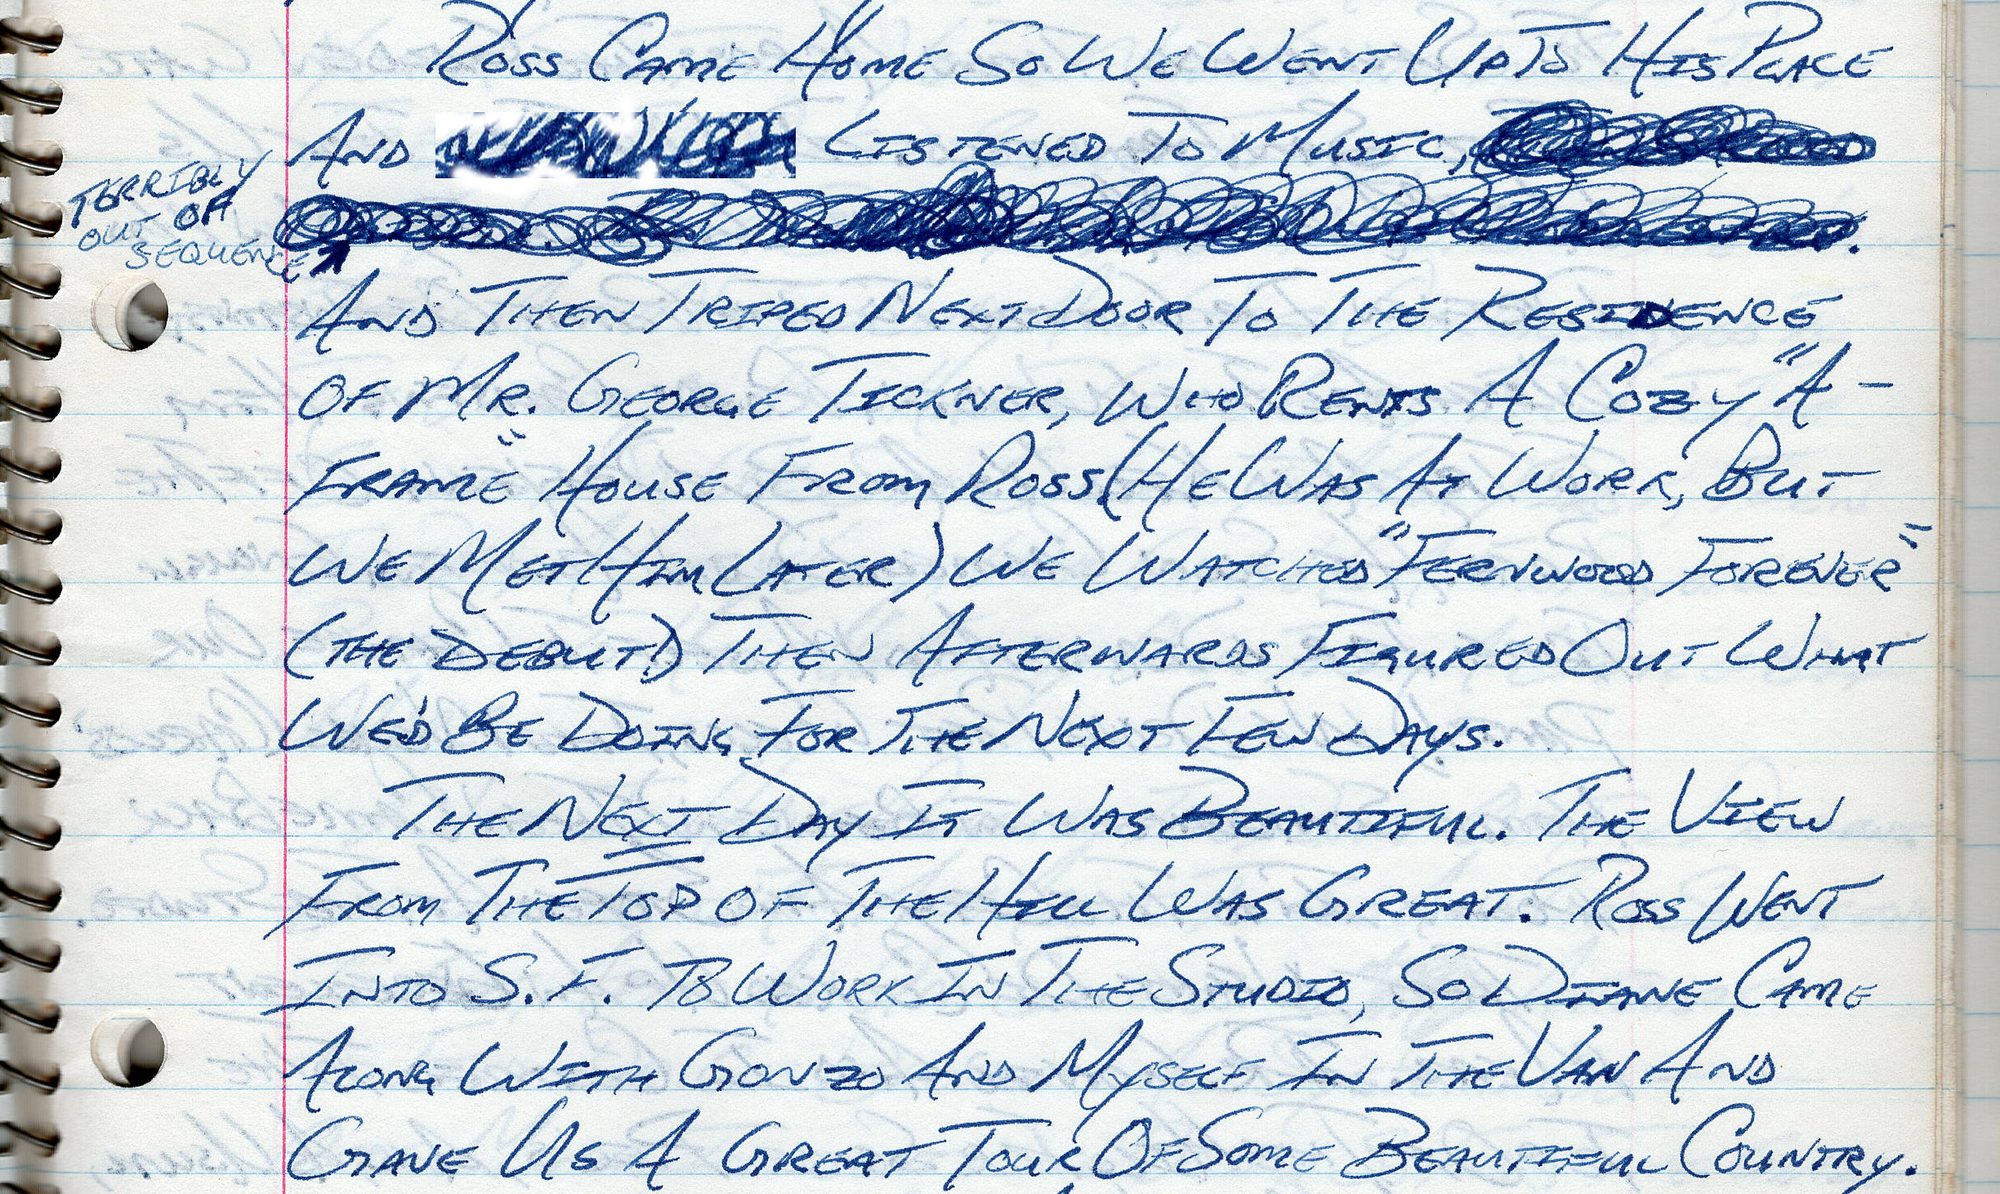 Ross Came Home So We Went Up To His Place
And Listened To Music,
Terribly
out of
sequence
And Then Triped Next Door To The Residence
Of Mr. George Tickner, Who Rents A Cozy "A-
Frame" House From Ross (He Was At Work, But
We Met Him Later) We Watched "Fernwood Forever"
(The Debut!) Then Afterwards Figured Out What
We'd Be Doing For The Next Few Days.
The Next Day It Was Beautiful. The View
From The Top Of The Hill Was Great. Ross Went
Into S.F. To Work In The Studio, So Diane Came
Along With Gonzo And Myself In The Van And
Gave Us A Great Tour Of Some Beautiful Country.